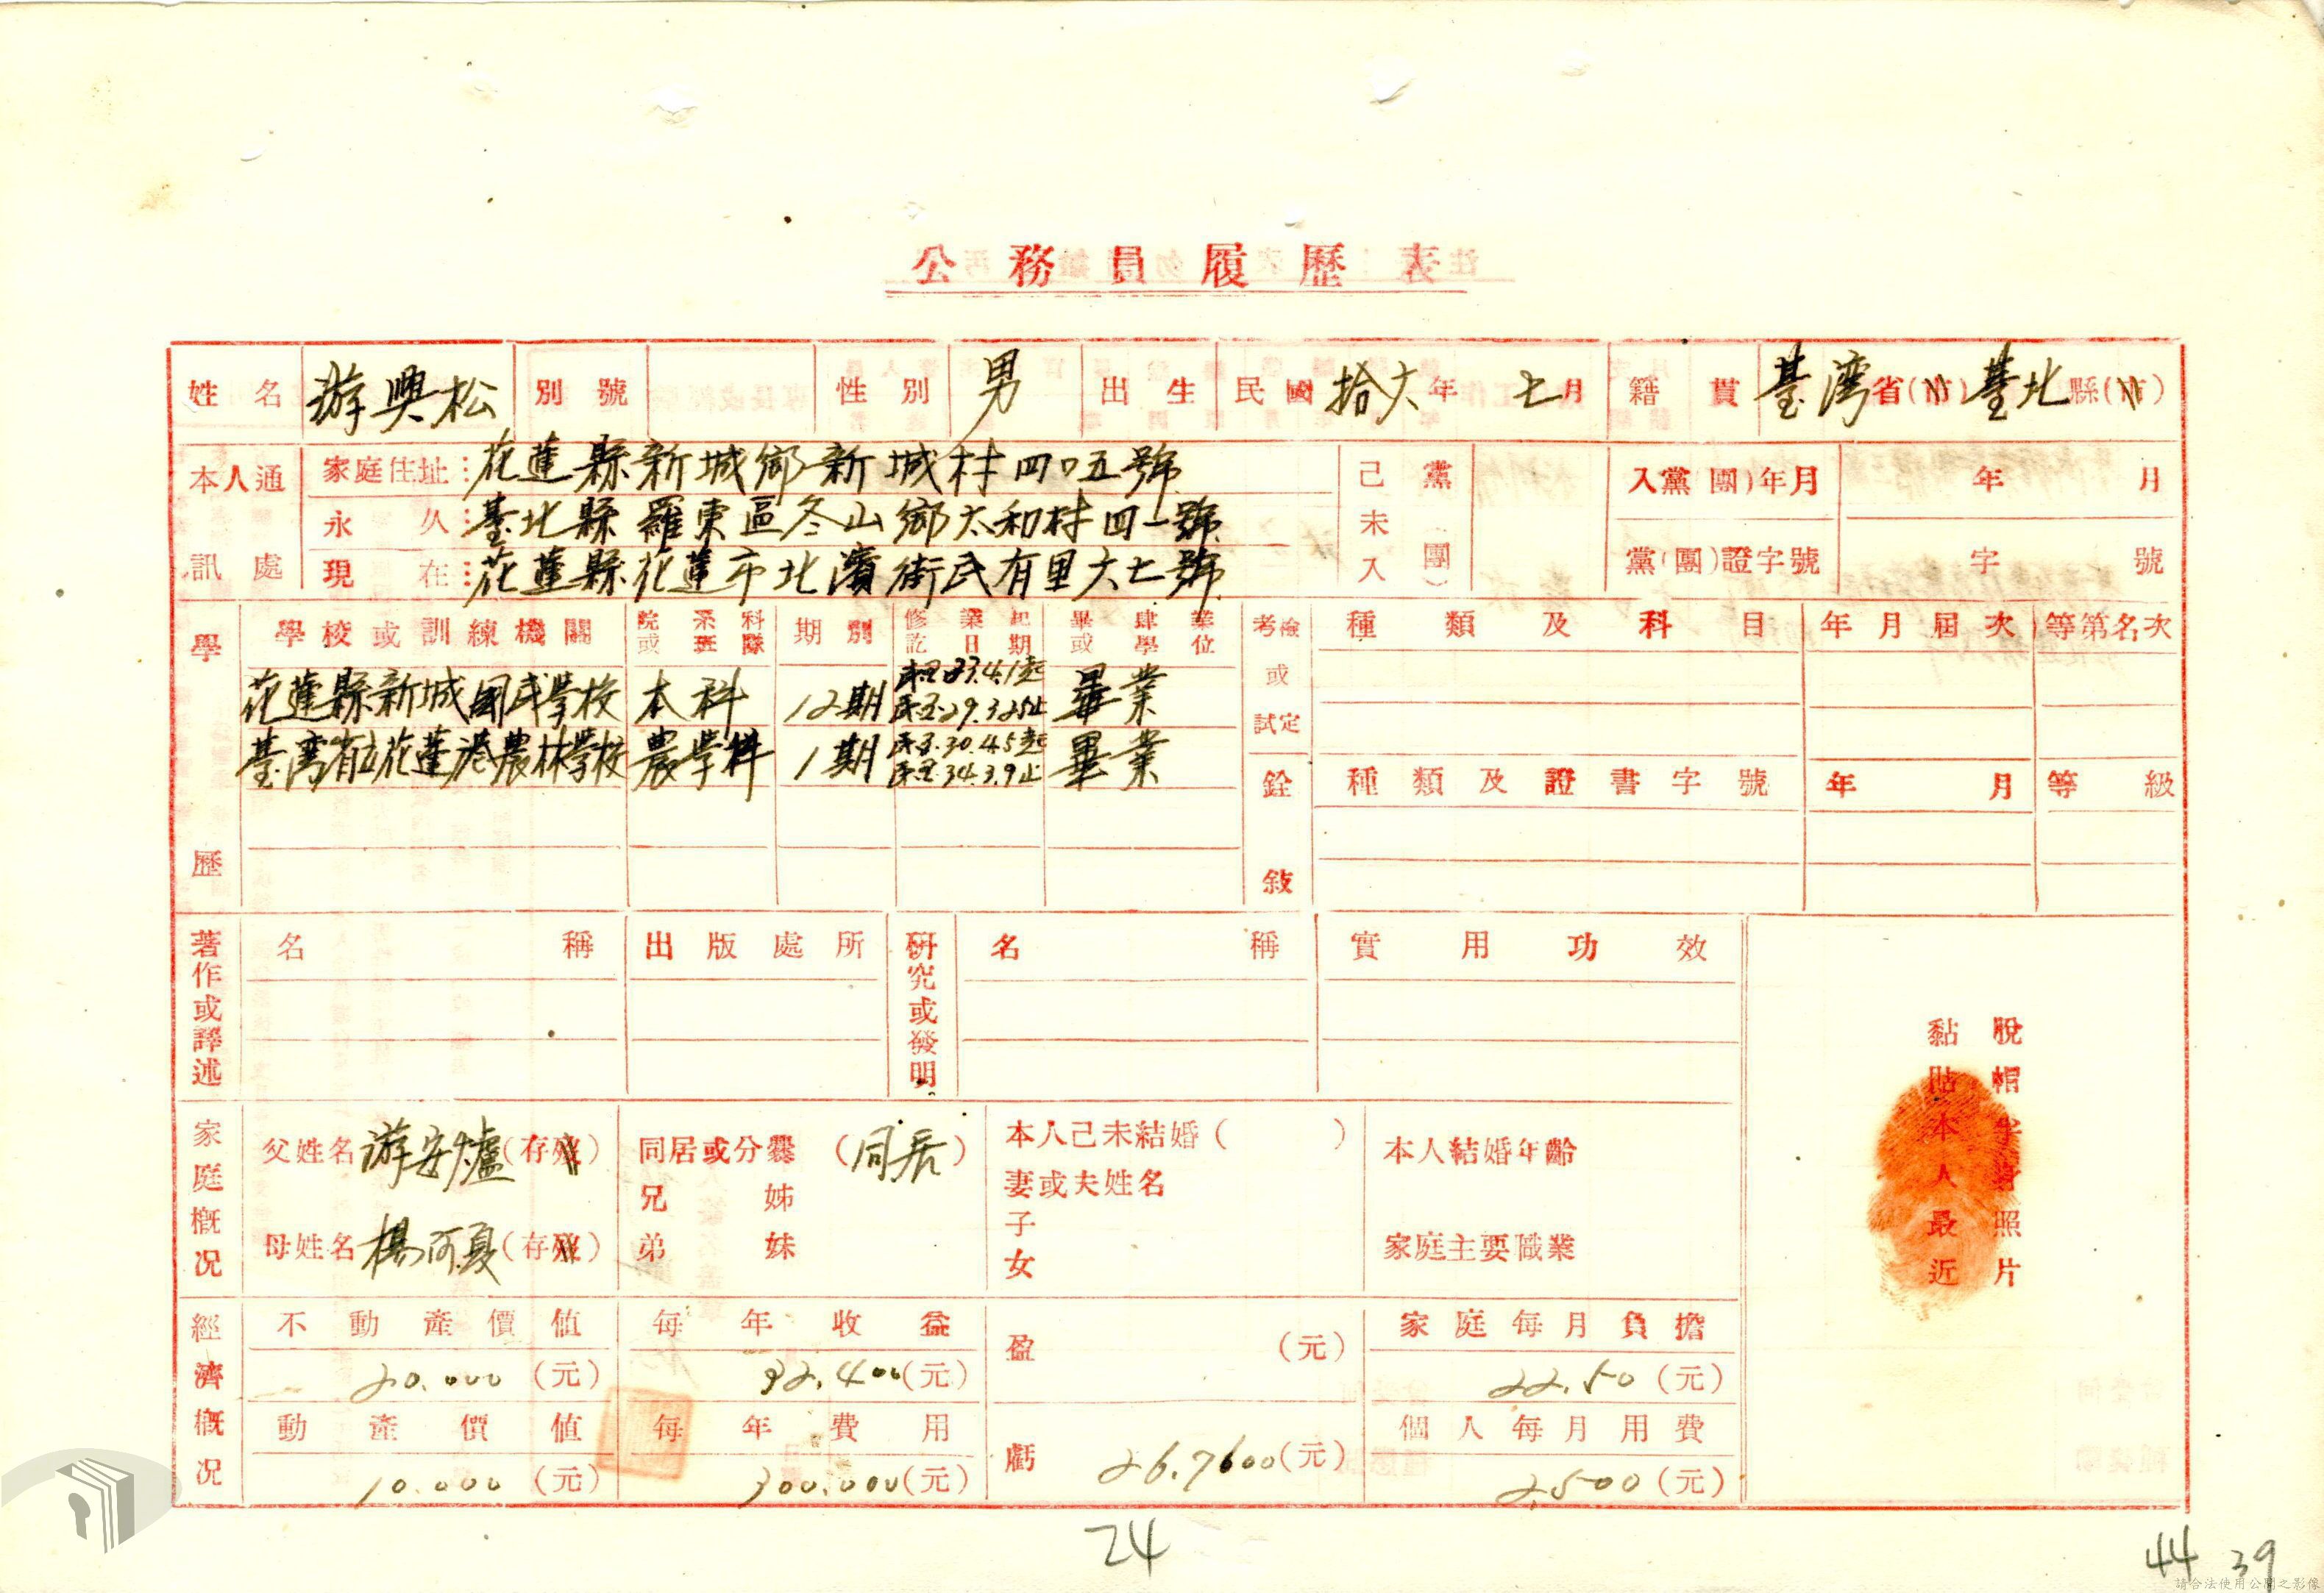 公務員履歷表
姓名 游興松 別號 性別 男 出生 民國 拾六年 七月 籍貫 臺灣省(市)臺北縣(市)
本人通訊處
家庭住址：花蓮縣新城鄉新城村四口五號
永久：臺北縣羅東區冬山鄉太和村四一號
現在：花蓮縣花蓮市北濱街民有里六七號
己未入黨(團) 入黨(團)年月 年 月
黨(團)證字號 字 號
學歷 學校或訓練機關 院或系班科隊 期別 修業起訖日期 畢肄業或學位
花蓮縣新城國民學校 本科 12期 民國23.4.1起 民國29.3.25止 畢業
臺灣省立花蓮港農林學校 農學科 1期 民國30.4.5起 民國34.3.9止 畢業
考試或檢定 種類及科目 年月屆次 等第名次
銓敍 種類及證書字號 年月 等級
著作或譯述 名稱 出版處所 研究或發明 名稱 實用功效
家庭概況
父姓名 游安爐(存歿) 同居或分爨(同居) 本人己未結婚( ) 本人結婚年齡
兄姊 妻或夫姓名
母姓名 楊阿夏(存歿) 弟妹 子女 家庭主要職業
黏貼本人最近脫帽半身照片
經濟概況
不動產價值 每年收益 盈 (元) 家庭每月負擔
20.000(元) 32.400(元) 22.50(元)
動產價值 每年費用 虧 26.7600(元) 個人每月用費
10.000(元) 300.000(元) 2,500(元)
24
44 39
請合法使用公開之影像